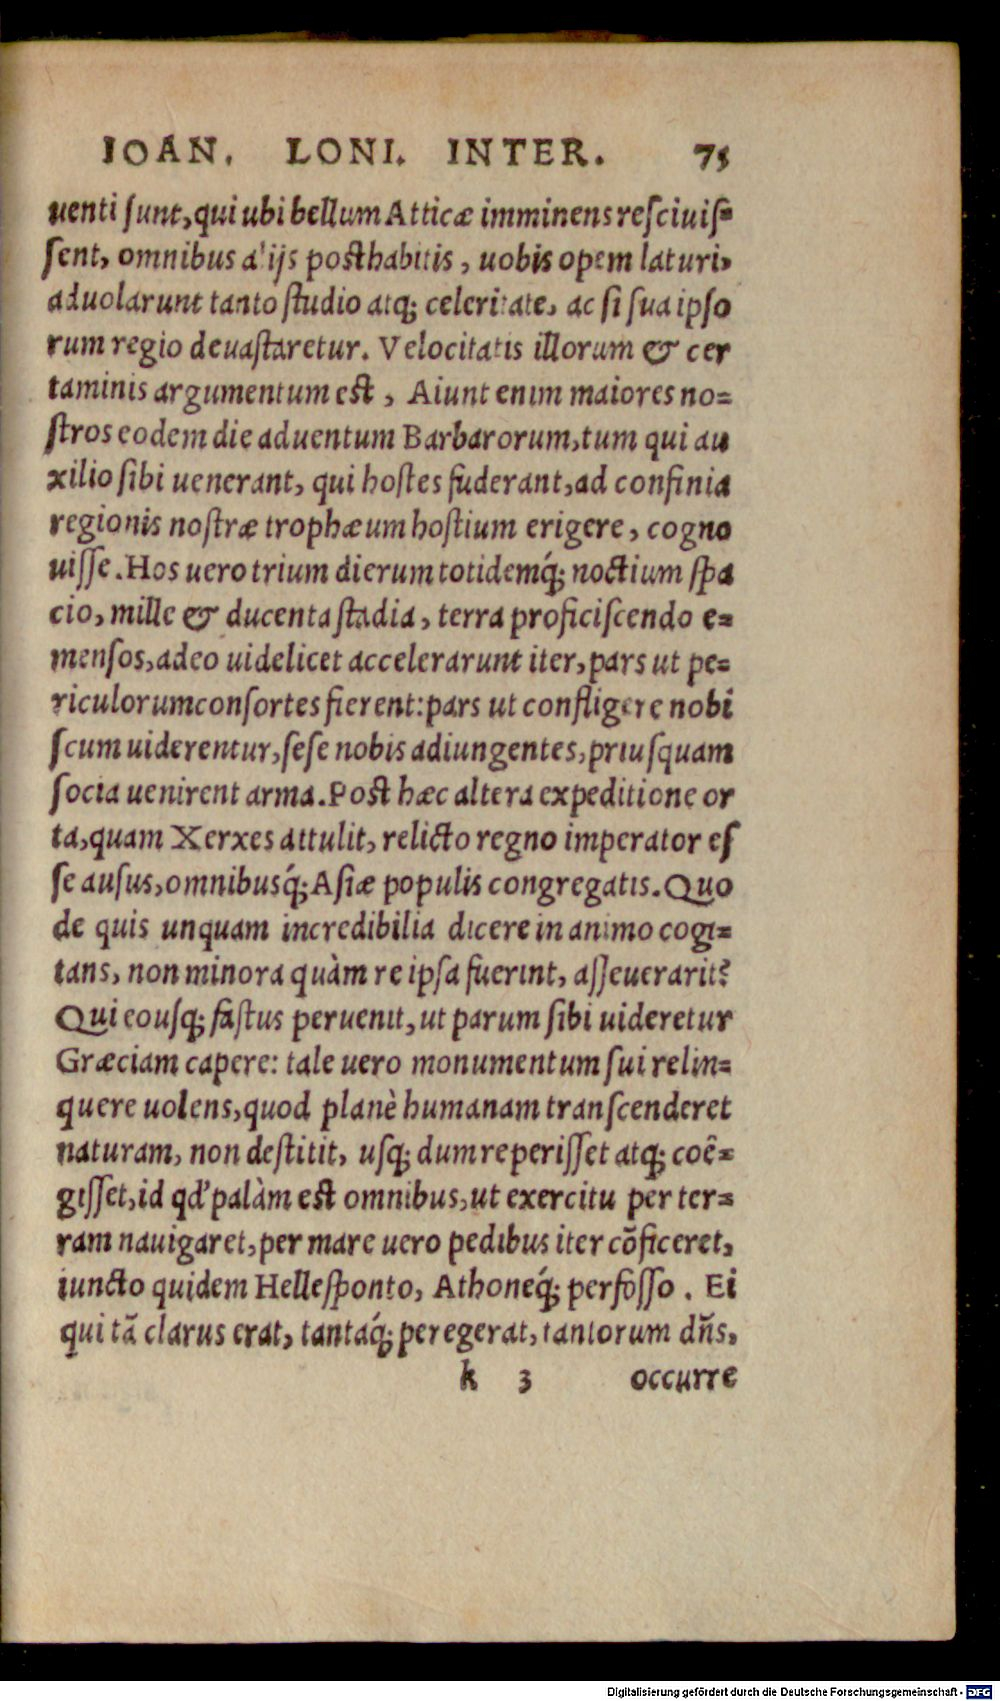 IOAN. LONI. INTER. 75
uenti ſunt, qui ubi bellum Atticæ imminens reſciuiſ=
ſent, omnibus alijs posthabitis, uobis opem laturi,
aduolarunt tanto ſtudio atq; celeritate, ac ſi ſua ipſo
rum regio deuaſtaretur. Velocitatis illorum & cer
taminis argumentum est, Aiunt enim maiores no=
ſtros eodem die aduentum Barbarorum, tum qui au
xilio ſibi uenerant, qui hoſtes fuderant, ad confinia
regionis noſtræ trophæum hoſtium erigere, cogno
uiſſe. Hos uero trium dierum totidemq́; noctium ſpa
cio, mille & ducenta ſtadia, terra proficiſcendo e=
menſos, adeo uidelicet accelerarunt iter, pars ut pe=
riculorum conſortes fierent: pars ut confligere nobi
ſcum uiderentur, ſeſe nobis adiungentes, priuſquam
ſocia uenirent arma. Post hæc altera expeditione or
ta, quam Xerxes attulit, relicto regno imperator eſ
ſe auſus, omnibusq́; Aſiæ populis congregatis. Quo
de quis unquam incredibilia dicere in animo cogi=
tans, non minora quàm re ipſa fuerint, aſſeuerarit?
Qui eouſq; faſtus peruenit, ut parum ſibi uideretur
Græciam capere: tale uero monumentum ſui relin=
quere uolens, quod planè humanam tranſcenderet
naturam, non deſtitit, uſq; dum reperiſſet atq; coë=
giſſet, id qd' palàm est omnibus, ut exercitu per ter=
ram nauigaret, per mare uero pedibus iter cõficeret,
iuncto quidem Helleſponto, Athoneq́; perfoſſo. Ei
qui tã clarus erat, tantaq́; peregerat, tantorum dñs,
k 3 occurre
Digitalisierung gefördert durch die Deutsche Forschungsgemeinschaft - DFG